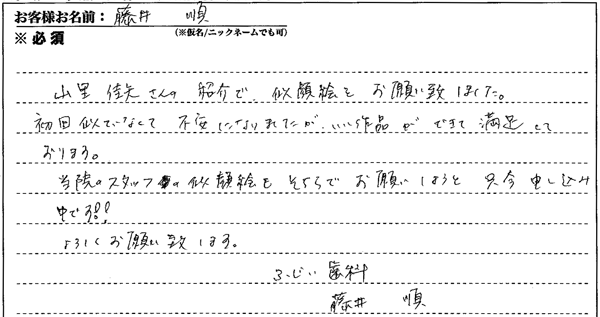 お客様お名前：藤井 順
※必須
(※仮名/ニックネームでも可)
山里 佳矢さんの 紹介で、似顔絵を お願い致しました。
初回似ていなくて 不安になりましたが、いい作品が できて 満足して
おります。
当院のスタッフの似顔絵も そちらで お願いしようと 只今 申し込み
中です!!
よろしくお願い致します。
ふじい歯科
藤井 順